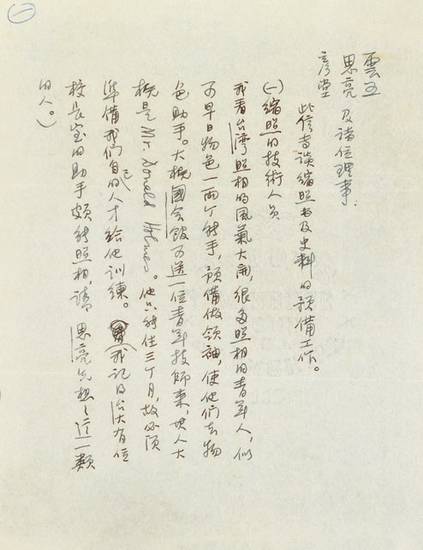 一
雲五
思亮 及諸位理事:
彥堂
此信專談縮照書及史料的預備工作。
(一)縮照的技術人員
我看台灣照相的風氣大開,很多照相的青年人,似
可早日物色一兩个能手,預備做領袖,使他們去物
色助手。大概國會館可送一位青年技師來,其人大
概是 Mr. Donald Holmes。他只能住三个月,故必須
準備我們自己的人才給他訓練。(我記得台大有位
校長室的助手頗能照相,請 思亮先想想這一類
的人。)